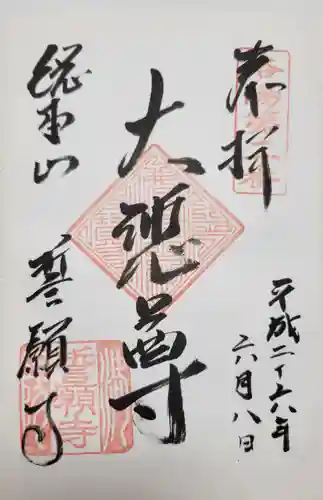 奉拝
平成二十六年
六月八日
大悲尊
総本山
誓願寺
誓願寺